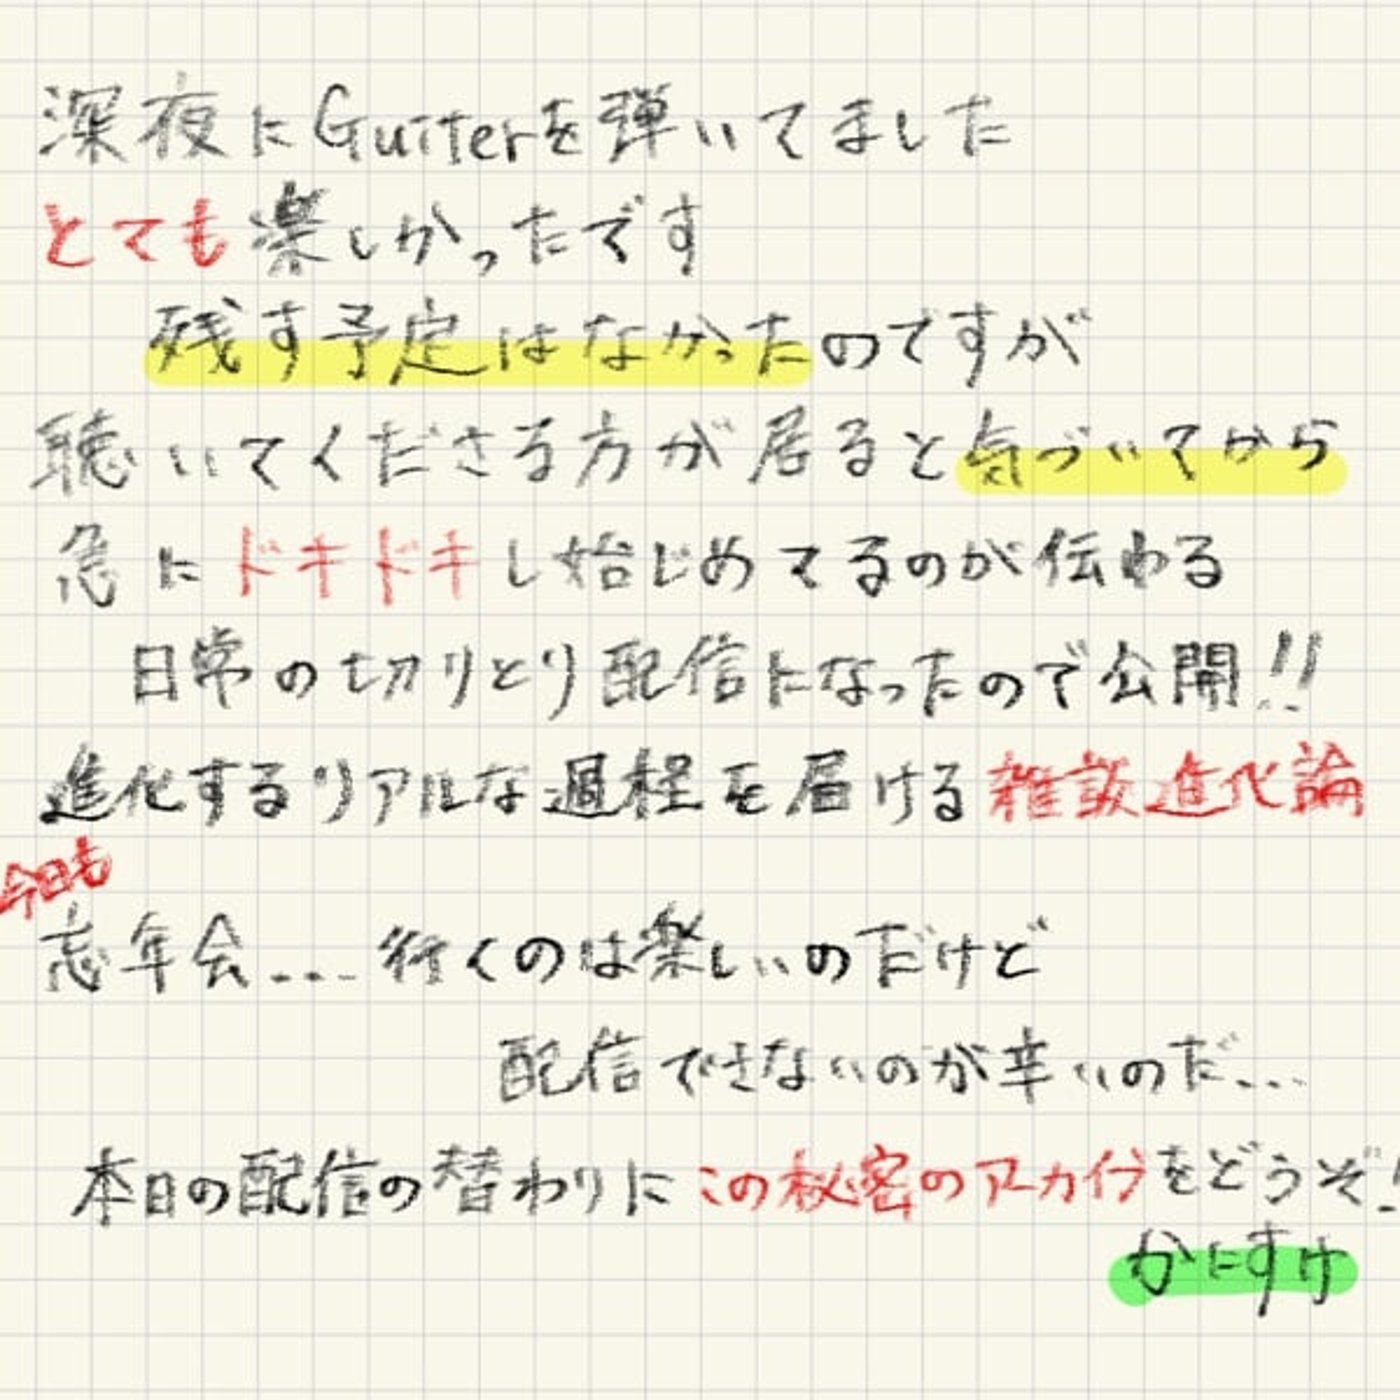 深夜にGuiterを弾いてました
とても楽しかったです
残す予定はなかったのですが
聴いてくださる方が居ると気づいてから
急にドキドキし始じめてるのが伝わる
日常の切りとり配信になったので公開!!
進化するリアルな過程を届ける雑談進化論
今日も
忘年会... 行くのは楽しいのだけど
配信できないのが辛いのだ...
本日の配信の替わりにこの秘密のアーカイブをどうぞ!
かにすけ